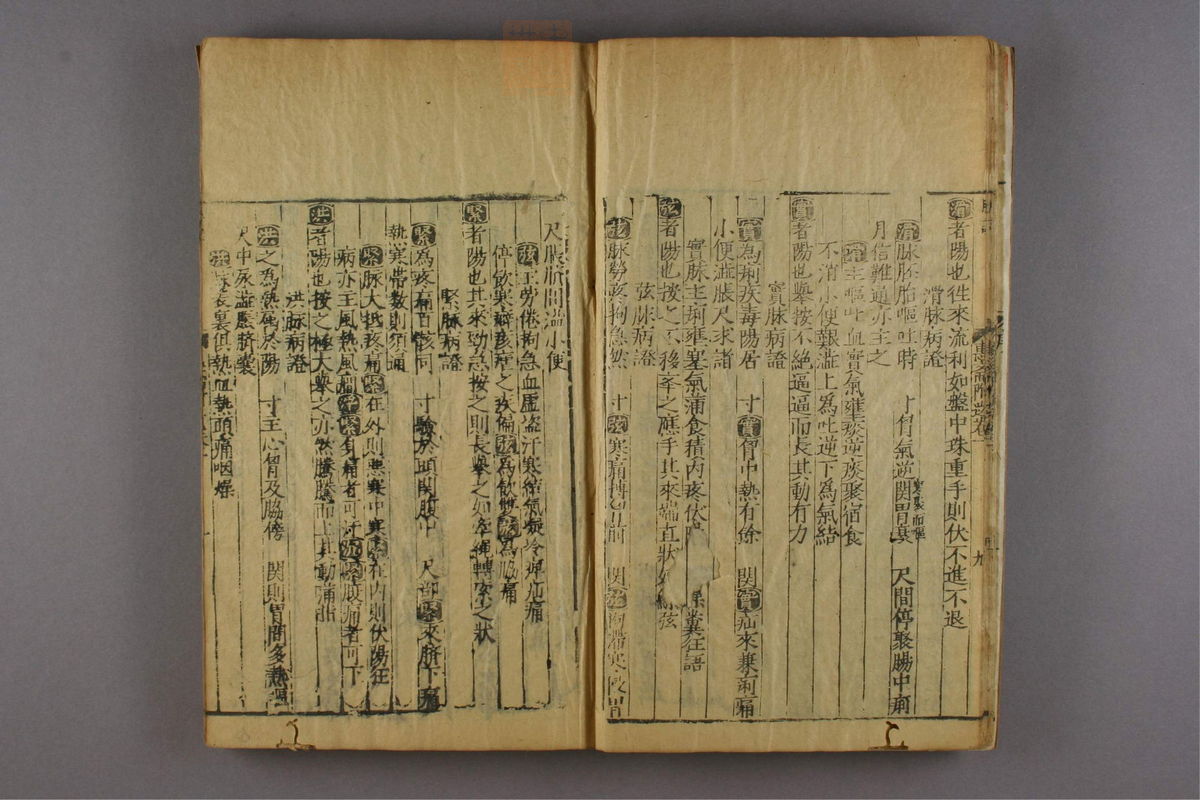 滑者陽也徃來流利如盤中珠重手則伏不進不退
滑脉病證
滑脉胚胎嘔吐時
月信難通亦主之
寸胷氣逆関胃裏寒聚而嘔
尺間停聚腸中痢
滑主嘔吐血實氣壅痰逆癈聚宿食
不消小便艱澁上為吐逆下為氣結
實者陽也舉按不絕逼逼而長其動有力
實脉病證
實為痢疾毒陽居
小便澁脹尺求諸
寸實胷中熱有余
関實疝來兼痢痛
實脉主痢壅塞氣蒲食積內疼伏
糞狂語
弦者陽也按之不移舉之應手其來端直狀如弦
弦脉病證
弦脉勞疼拘急然
寸弦寒痛搏
関弦拘滯寒胃
尺脹臍間溢小便
弦主勞倦拘急血虛盗汗寒結氣凝冷痺疝痛
停飲寒癖痎瘧之疾偏弦為飲雙弦為脇痛
緊者陽也其來勁急按之則長舉之如牽繩轉索之狀
緊脉病證
緊為疼痛百骸同
熱寒帶數則須通
寸驗於頭関腹中
尺部緊來臍下痛
緊脉大抵疼痛緊在外則悪寒中寒在內則伏陽狂
病亦主風熱風癎浮緊身痛者可汗沉緊腹痛者可下
洪者陽也按之極大舉之亦然騰騰而上其動
洪脉病證
洪之為熱為於陽
尺中尿澁應臍囊
寸主心胷及脇傍
関則胃間多熱
洪表裏俱熱血熱頭痛咽燥
九